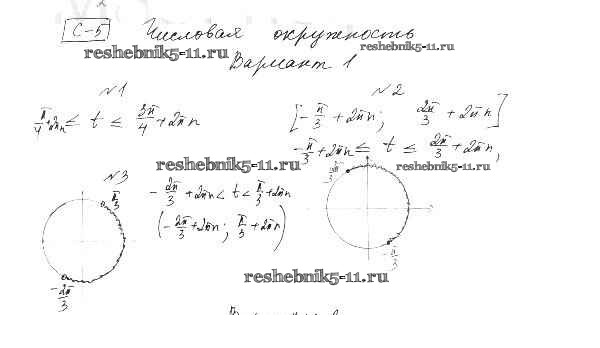 С-5 Числовая окружность
reshebnik5-11.ru
reshebnik5-11.ru
Вариант 1
№1
π/4+2πn ≤ t ≤ 3π/4+2πn
№2
[-π/3+2πn; 2π/3+2πn]
-π/3+2πn ≤ t ≤ 2π/3+2πn,
reshebnik5-11.ru
reshebnik5-11.ru
№3
-2π/3+2πn < t < π/3+2πn
(-2π/3+2πn; π/3+2πn)
π/3
-2π/3
-π/3
reshebnik5-11.ru